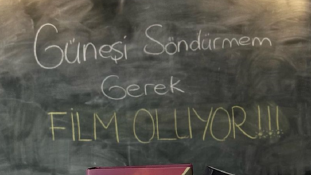 Güneşi Söndürmem
Gerek
FİLM OLUYOR!!!